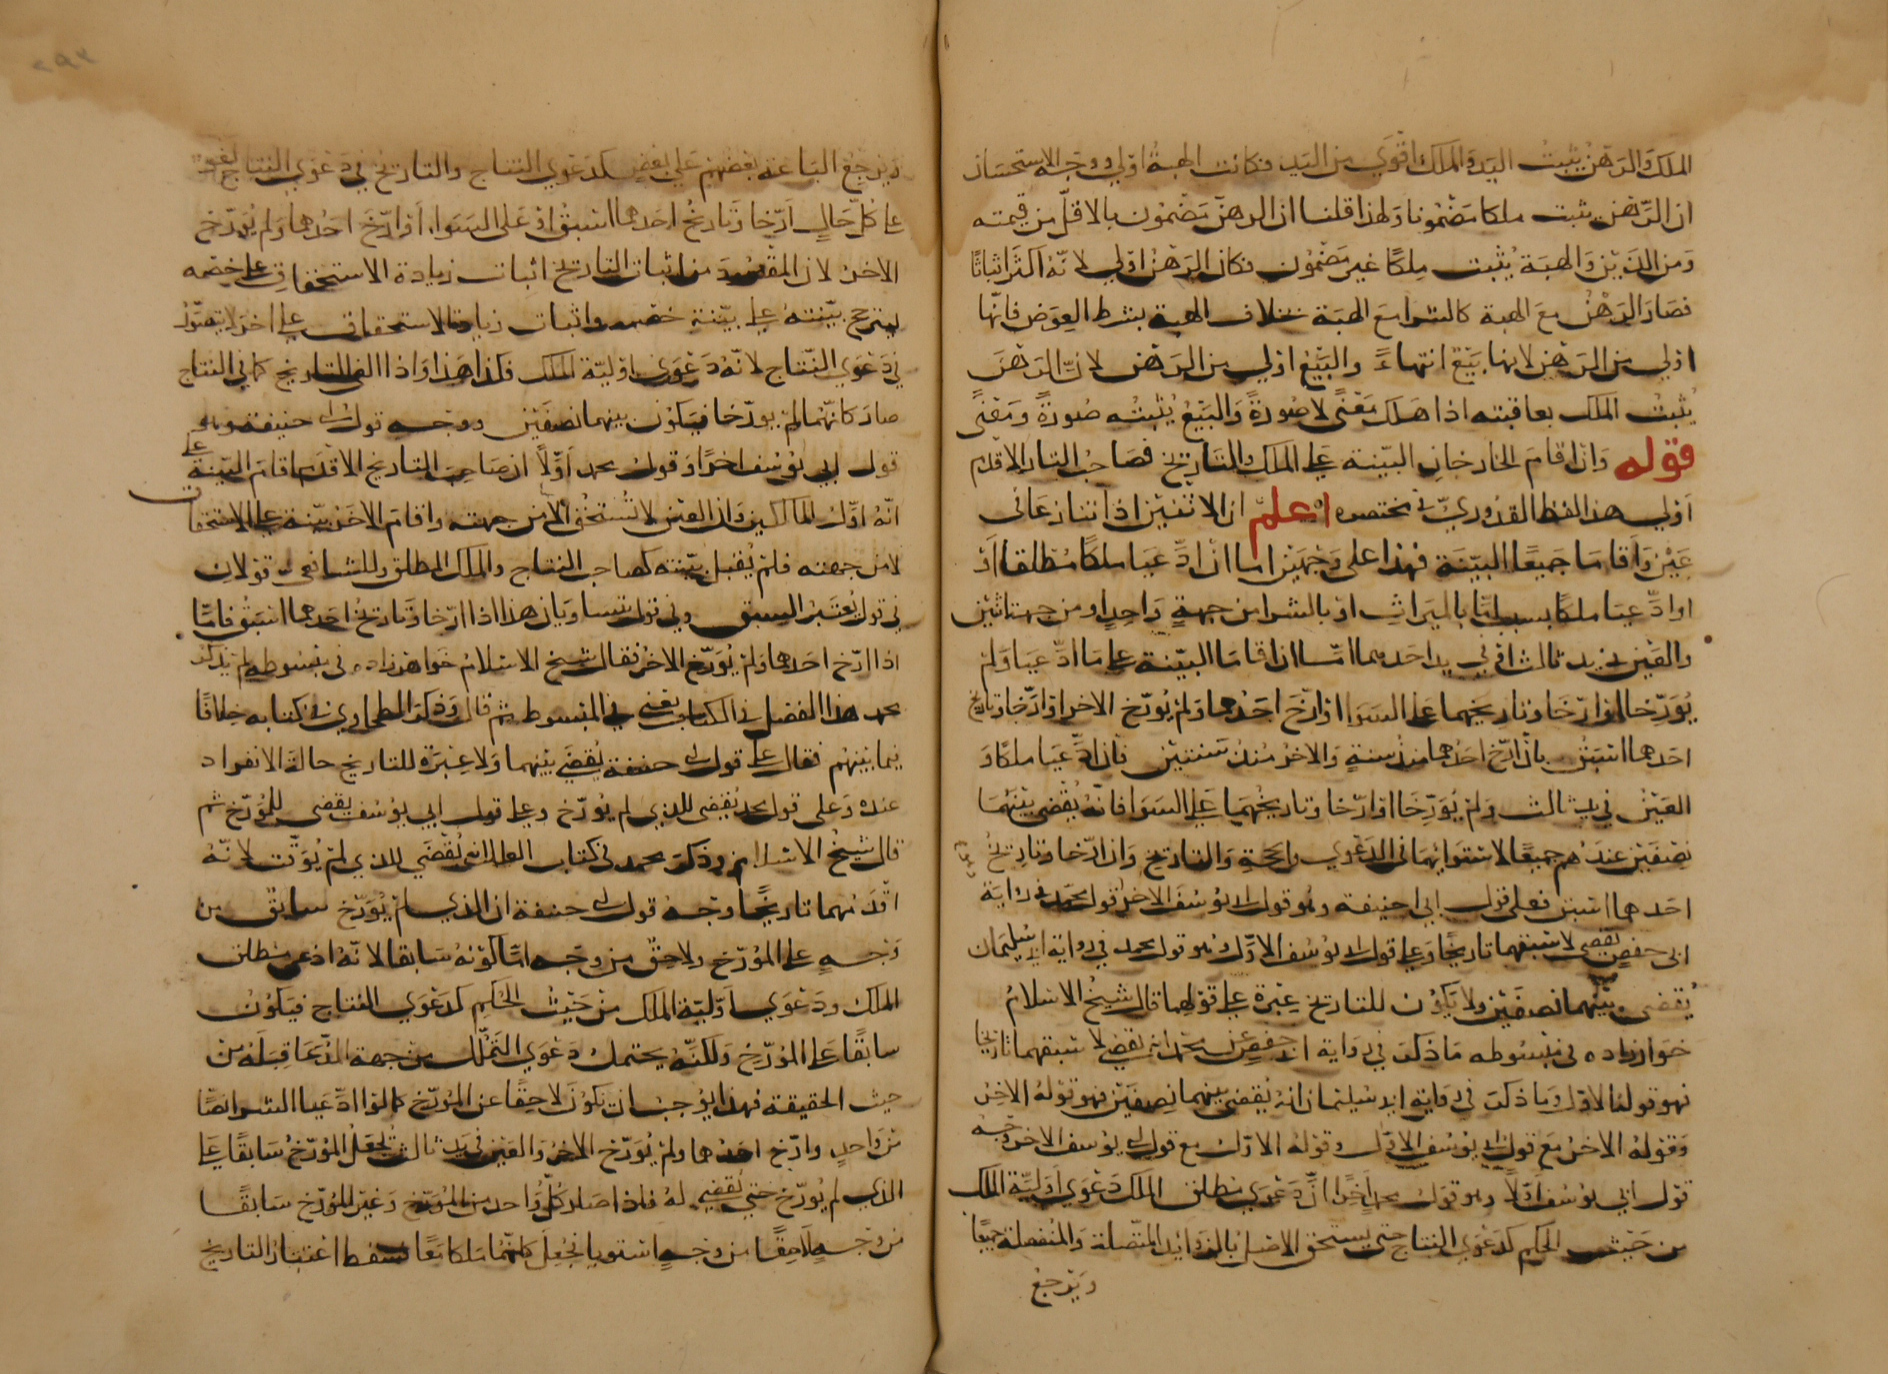 الملك والرهن يثبت اليد والملك اقوي من اليد فكانت الهبة اولي ووجه الاستحسان
ان الرهن يثبت ملكا مضمونا ولهذا قلنا ان الرهن مضمون بالاقل من قيمته
ومن الدين والهبة يثبت ملكا غير مضمون فكان الرهن اولي لانه اكثر اثباتا
فصار الرهن مع الهبة كالشرا مع الهبة بخلاف الهبة بشرط العوض فانها
اولي من الرهن لانها بيع انتهاء والبيع اولي من الرهن لان الرهن
يثبت الملك بعاقبته اذا هلك معنى لا صورة والبيع يثبته صورة ومعنى
قوله وان اقام الخارجان البينة علي الملك والتاريخ فصاحب التاريخ الاقدم
اولي هذا لفظ القدوري في مختصره اعلم ان الاثنين اذا تنازعا في
عين واقاما جميعا البينة فهذا على وجهين اما ان ادعيا ملكا مطلقا او
او ادعيا ملكا بسبب اما بالميراث او بالشرا من جهة واحد او من جهة اثنين
والعين في يد ثالث او في يد احدهما اما ان اقاما البينة علي ما ادعيا ولم
يورخا او ارخا وتاريخهما علي السوا او ارخ احدهما ولم يورخ الاخر او ارخا وتاريخ
احدهما اسبق بان ارخ احدهما منذ سنة والاخر منذ سنتين فان ادعيا ملكا و
العين في يد ثالث ولم يورخا او ارخا وتاريخهما علي السوا فانه يقضى بينهما
نصفين عندهم جميعا لاستوائهما في الدعوي والحجة والتاريخ وان ارخا وتاريخ
احدهما اسبق فعلى قول ابي حنيفة وهو قول ابي يوسف الاخر وقول محمد في رواية
ابي حفص يقضى لاسبقهما تاريخا وعلي قول ابي يوسف الاول وهو قول محمد في رواية ابي سليمان
يقضى بينهما نصفين ولا يكون للتاريخ عبرة علي قولهما قال شيخ الاسلام
خواهرزاده في مبسوطه ما ذكر في رواية ابي حفص عن محمد انه يقضي لاسبقهما تاريخا
فهو قوله الاول وما ذكر في رواية ابي سليمان انه يقضى بينهما نصفين فهو قوله الاخر
وقوله الاخر مع قول ابي يوسف الاول وقوله الاول مع قول ابي يوسف الاخر وجه
قول ابي يوسف اولا وهو قول محمد اخرا ان دعوي مطلق الملك دعوي اولية الملك
من حيث الحكم كدعوي النتاج حتى يستحق الاصل بالزوايد المتصلة والمنفصلة جميعا
ويرجع
ويرجع الباعة بعضهم علي بعض كدعوي النتاج والتاريخ في دعوي النتاج لغو
علي كل حال ارخا وتاريخ احدهما اسبق او على السوا او ارخ احدهما ولم يورخ
الاخر لان المقصود من اثبات التاريخ اثبات زيادة الاستحقاق علي خصمه
ليترجح بينته علي بينة خصمه واثبات زيادة الاستحقاق علي اخر لا يتصور
في دعوي النتاج لانه دعوى اولية الملك فكذا هذا واذا الغي التاريخ كما في النتاج
صار كانهما لم يورخا فيكون بينهما نصفين ووجه قول ابي حنيفة وهو
قول ابي يوسف اخرا وقول محمد اولا ان صاحب التاريخ الاقدم اقام البينة علي
انه اول المالكين وان العين لا تستحق الا من جهته واقام الاخر بينة علي الاستحقاق
لا من جهته فلم يقبل بينته كصاحب النتاج والملك المطلق وللشافعي قولان
في قول يعتبر السبق وفي قول يتساويان هذا اذا ارخا وتاريخ احدهما اسبق فاما
اذا ارخ احدهما ولم يورخ الاخر فقال شيخ الاسلام خواهرزاده في مبسوطه لم يذكر
محمد هذا الفصل في الكتاب يعني في المبسوط ثم قال وذكر الطحاوي في كتابه خلافا
فيما بينهم فقال علي قول ابي حنيفة يقضي بينهما ولا عبرة للتاريخ حالة الانفراد
عنده وعلى قول محمد يقضى للذي لم يورخ وعلي قول ابي يوسف يقضى للمورخ ثم
قال شيخ الاسلام وذكر محمد في كتاب انه يقضي للذي لم يوقت لانه
اقدمهما تاريخا وجه قول ابي حنيفة ان الذي لم يورخ سابق من
وجه علي المورخ ولاحق من وجه اما كونه سابقا لانه ادعى مطلق
الملك ودعوي اولية الملك من حيث الحكم كدعوي النتاج فيكون
سابقا علي المورخ ولكنه يحتمل دعوي التملك من جهة المدعا قبله من
حيث الحقيقة فهذا يوجب ان يكون لاحقا عن المورخ كما لو ادعيا الشرا نصا
من واحد وارخ احدهما ولم يورخ الاخر والعين في يد ثالث يجعل المورخ سابقا علي
الذي لم يورخ حتي يقضي له فاذا صار كل واحد من المورخ وغير المورخ سابقا
من وجه لاحقا من وجه استويا فجعل كانهما ملكا معا فسقط اعتبار التاريخ